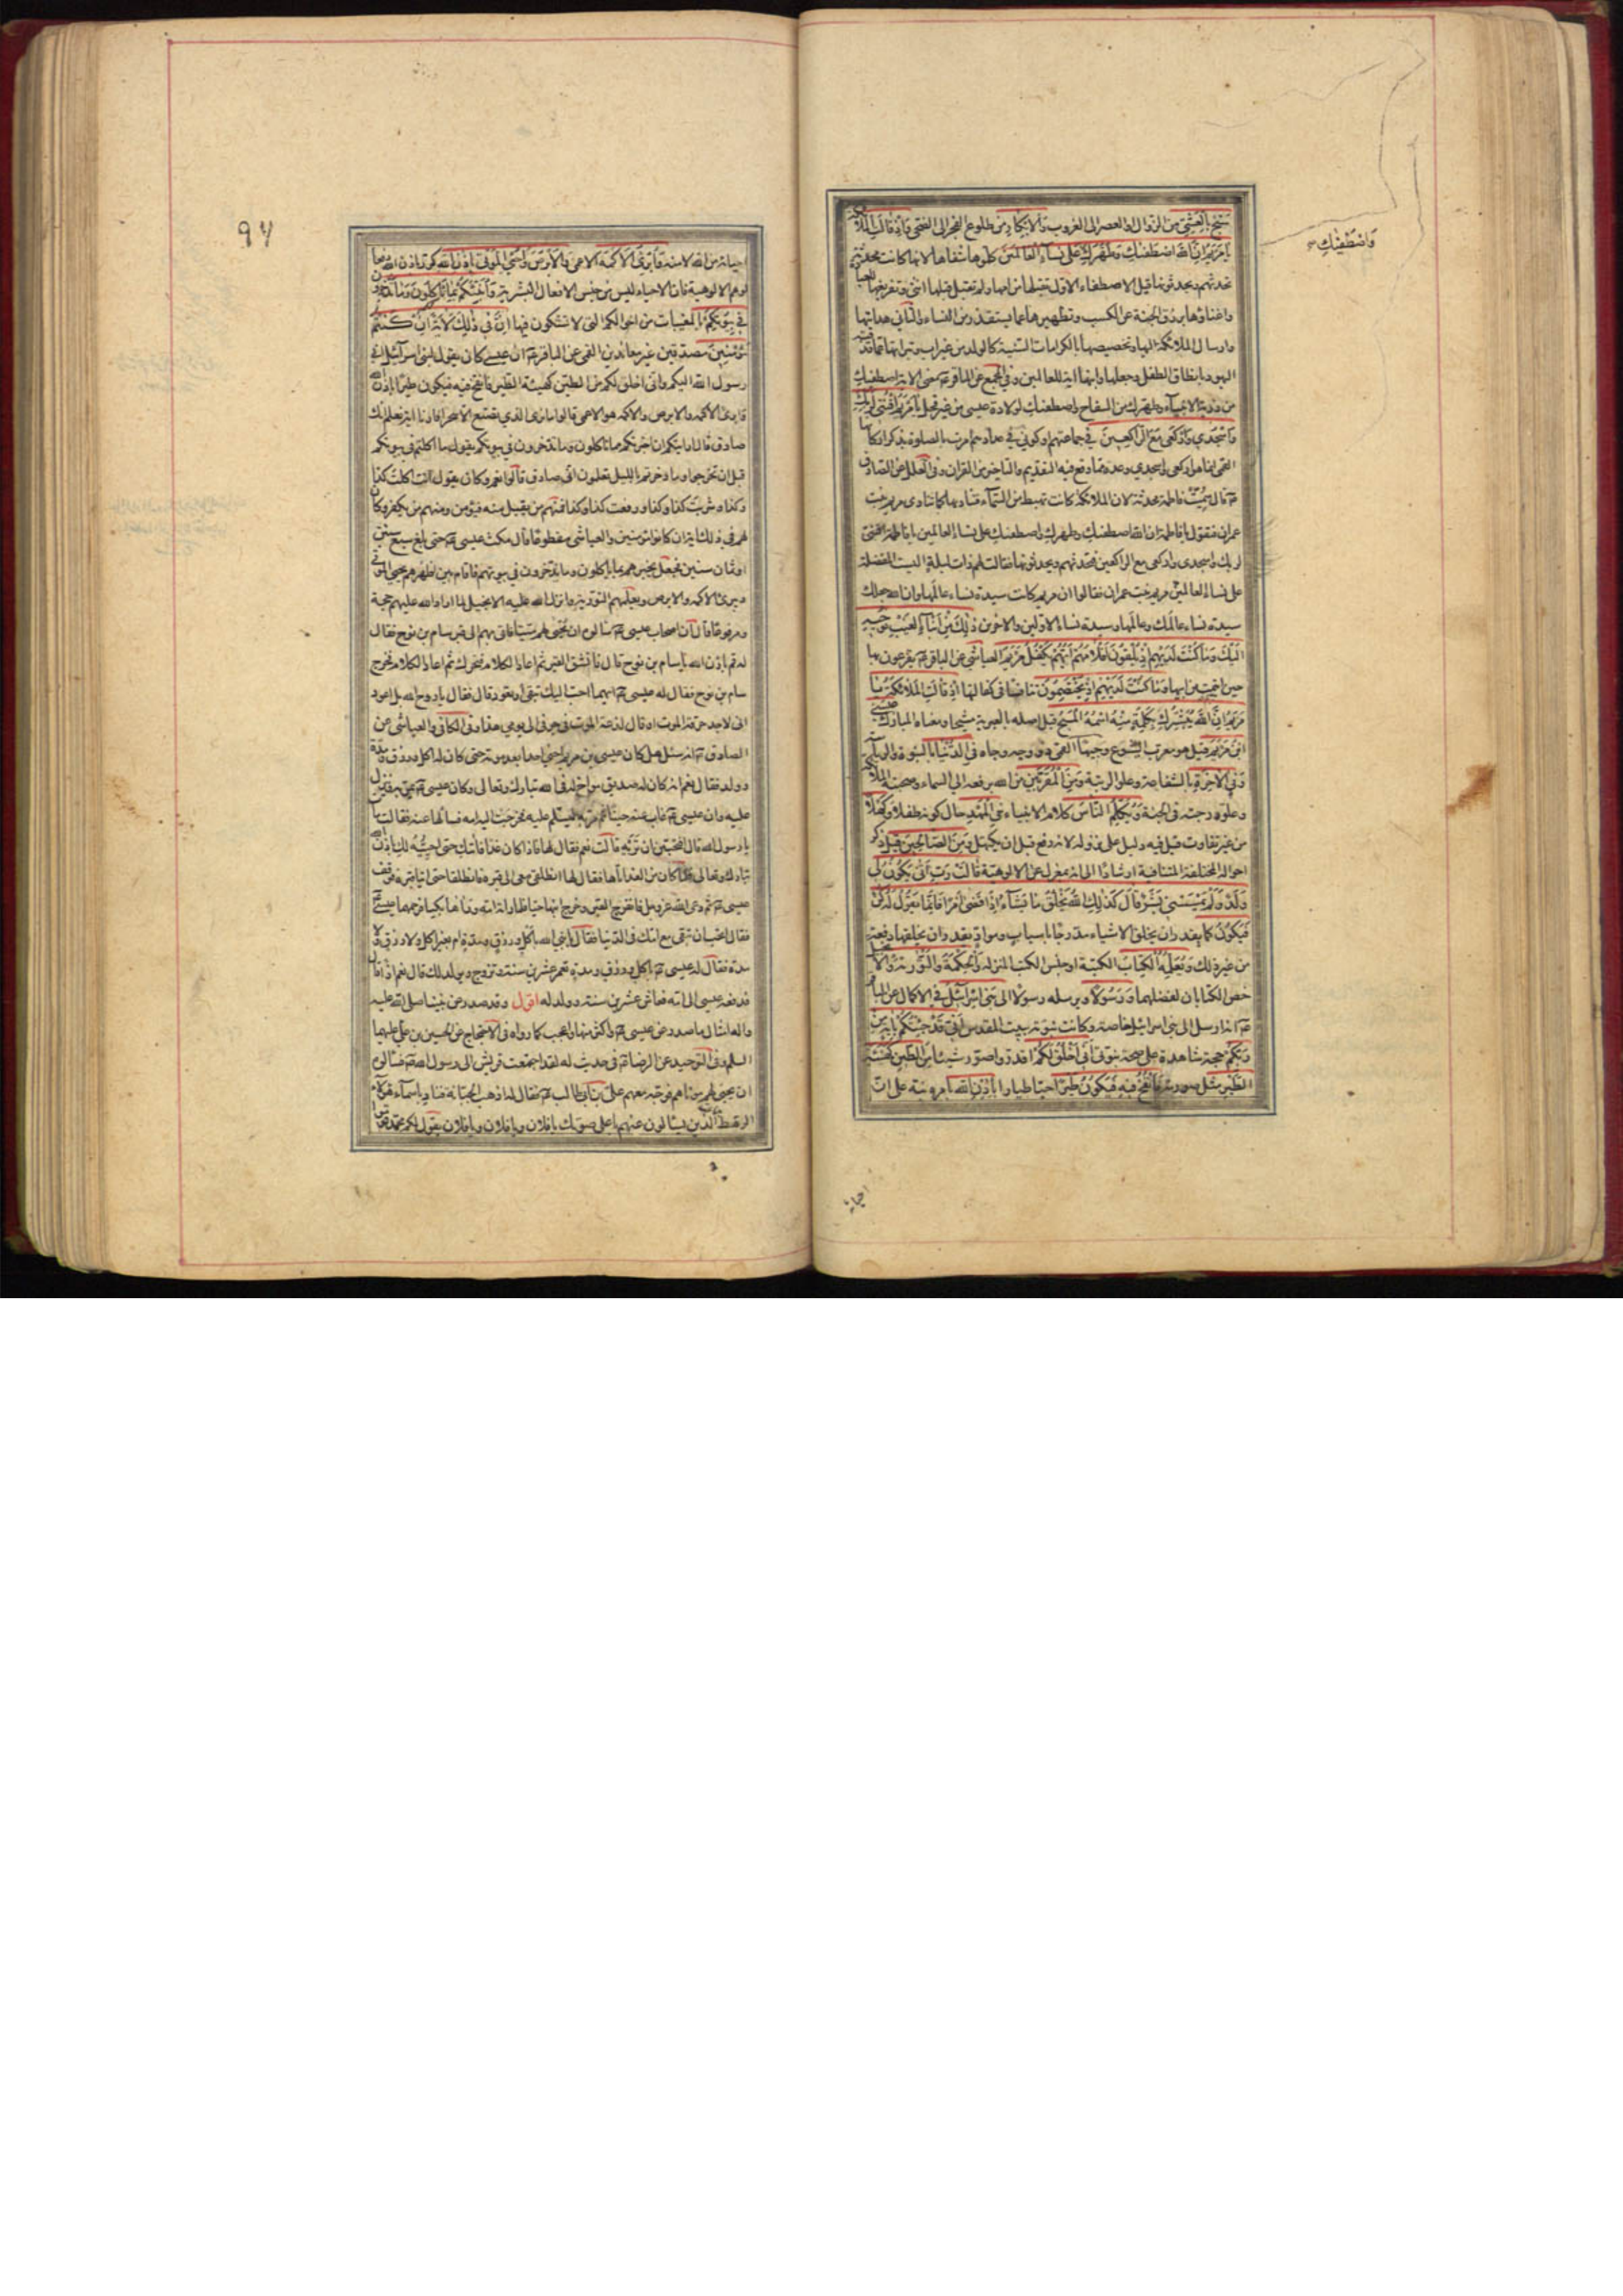 سَبِّحْ بِالْعَشِيِّ من الزوال او العصر الى الغروب وَالْإِبْكَارِ من طلوع الفجر الى الضحى وَإِذْ قَالَتِ الْمَلَائِكَةُ
يَا مَرْيَمُ إِنَّ اللَّهَ اصْطَفَاكِ وَطَهَّرَكِ عَلَى نِسَاءِ الْعَالَمِينَ كلموها شفاها لانها كانت محدثة
تحدثهم ويحدثونها قيل الاصطفاء الاول تقبلها من امها ولم تقبل قبلها انثى وتفريغها للعبادة
واغناؤها برزق الجنة عن الكسب وتطهيرها عما يستقذر من النساء والثاني هدايتها
وارسال الملائكة اليها وتخصيصها بالكرامات السنية كالولد من غير اب وتبرأتها مما قذفته
اليهود بانطاق الطفل وجعلها وابنها اية للعالمين وفي المجمع عن الباقر ع معنى الاية اصطفيك
من ذرية الانبياء وطهرك من السفاح واصطفيك لولادة عيسى من غير فحل يَا مَرْيَمُ اقْنُتِي لِرَبِّكِ
وَاسْجُدِي وَارْكَعِي مَعَ الرَّاكِعِينَ في جماعتهم او كوني في عدادهم امرت بالصلوة بذكر اركانها
القمي انما هو اركعي واسجدي وعده مما وقع فيه التقديم والتاخير من القران وفي العلل عن الصادق
ع قال سميت فاطمة محدثة لان الملائكة كانت تهبط من السماء فتناديها كما تنادى مريم بنت
عمران فتقول يا فاطمة ان الله اصطفيك وطهرك واصطفيك على نساء العالمين يا فاطمة اقنتي
لربك واسجدي واركعي مع الراكعين فتحدثهم ويحدثونها فقالت لهم ذات ليلة اليست المفضلة
على نساء العالمين مريم بنت عمران فقالوا ان مريم كانت سيدة نساء عالمها وان الله جعلك
سيدة نساء عالمك وعالمها وسيدة نساء الاولين والاخرين ذَلِكَ مِنْ أَنْبَاءِ الْغَيْبِ نُوحِيهِ
إِلَيْكَ وَمَا كُنْتَ لَدَيْهِمْ إِذْ يُلْقُونَ أَقْلَامَهُمْ أَيُّهُمْ يَكْفُلُ مَرْيَمَ العياشي عن الباقر ع يقرعون بها
حين ايتمت من ابيها وَمَا كُنْتَ لَدَيْهِمْ إِذْ يَخْتَصِمُونَ تنافسا في كفالتها إِذْ قَالَتِ الْمَلَائِكَةُ يَا
مَرْيَمُ إِنَّ اللَّهَ يُبَشِّرُكِ بِكَلِمَةٍ مِنْهُ اسْمُهُ الْمَسِيحُ قيل اصله بالعبرية مشيحا ومعناه المبارك عِيسَى
ابْنُ مَرْيَمَ قيل هو معرب ايشوع وَجِيهًا القمي ذو وجه وجاه فِي الدُّنْيَا بالنبوة
وَفِي الْآخِرَةِ بالشفاعة وعلو الرتبة وَمِنَ الْمُقَرَّبِينَ من الله برفعه الى السماء وصحبته الملائكة
وعلو درجته في الجنة وَيُكَلِّمُ النَّاسَ كلام الانبياء فِي الْمَهْدِ حال كونه طفلا وَكَهْلًا
من غير تفاوت قيل فيه دليل على نزوله لانه رفع قبل ان يكتهل وَمِنَ الصَّالِحِينَ قيل ذكر
احواله المختلفة المتنافية ارشادا الى انه بمعزل عن الالوهية قَالَتْ رَبِّ أَنَّى يَكُونُ لِي
وَلَدٌ وَلَمْ يَمْسَسْنِي بَشَرٌ قَالَ كَذَلِكِ اللَّهُ يَخْلُقُ مَا يَشَاءُ إِذَا قَضَى أَمْرًا فَإِنَّمَا يَقُولُ لَهُ كُنْ
فَيَكُونُ كما يقدر ان يخلق الاشياء مدرجا باسباب ومواد يقدر ان يخلقها دفعة
من غير ذلك وَيُعَلِّمُهُ الْكِتَابَ الكتبة او جنس الكتب المنزلة وَالْحِكْمَةَ وَالتَّوْرَاةَ وَالْإِنْجِيلَ
خص الكتابان لفضلهما وَرَسُولًا ويرسله رسولا إِلَى بَنِي إِسْرَائِيلَ في الاكمال عن الباقر
ع انه ارسل الى بني اسرائيل خاصة وكانت نبوته ببيت المقدس أَنِّي قَدْ جِئْتُكُمْ بِآيَةٍ مِنْ
رَبِّكُمْ حجة شاهدة على صحة نبوتي أَنِّي أَخْلُقُ لَكُمْ اقدر واصور شيئا مِنَ الطِّينِ كَهَيْئَةِ
الطَّيْرِ مثل صورته فَأَنْفُخُ فِيهِ فَيَكُونُ طَيْرًا حيا طيارا بِإِذْنِ اللَّهِ بامره نبه على ان
وَاصْطَفَاكِ
احياءه
٩٧
احياءه من الله لا منه وَأُبْرِئُ الْأَكْمَهَ الاعمى وَالْأَبْرَصَ وَأُحْيِي الْمَوْتَى بِإِذْنِ اللَّهِ كرر باذن الله دفعا
لوهم الالوهية فان الاحياء ليس من جنس الافعال البشرية وَأُنَبِّئُكُمْ بِمَا تَأْكُلُونَ وَمَا تَدَّخِرُونَ
فِي بُيُوتِكُمْ بالمغيبات من احوالكم التي لا تشكون فيها إِنَّ فِي ذَلِكَ لَآيَةً إِنْ كُنْتُمْ
مُؤْمِنِينَ مصدقين غير معاندين القمي عن الباقر ع ان عيسى كان يقول لبني اسرائيل اني
رسول الله اليكم واني اخلق لكم من الطين كهيئة الطير فانفخ فيه فيكون طيرا باذن الله
وابرئ الاكمه والابرص والاكمه هو الاعمى قالوا ما نرى الذي تصنع الا سحرا فارنا اية نعلم انك
صادق قال ارايتكم ان اخبرتكم بما تاكلون وما تدخرون في بيوتكم يقول ما اكلتم في بيوتكم
قبل ان تخرجوا وما دخرتم بالليل تعلمون اني صادق قالوا نعم وكان يقول انت اكلت كذا
وكذا وشربت كذا وكذا ورفعت كذا وكذا فمنهم من يقبل منه فيؤمن ومنهم من يكفر وكان
لهم في ذلك اية ان كانوا مؤمنين والعياشي مقطوعا قال مكث عيسى ع حتى بلغ سبع سنين
او ثمان سنين فجعل يخبرهم بما ياكلون وما يدخرون في بيوتهم فاقام بين اظهرهم يحيي الموتى
ويبرئ الاكمه والابرص ويعلمهم التورية وانزل الله عليه الانجيل لما اراد الله عليهم حجة
ومرفوعا قال ان اصحاب عيسى ع سالوه ان يحيي لهم ميتا فاتى بهم الى قبر سام بن نوح فقال
له قم باذن الله يا سام بن نوح قال فانشق القبر ثم اعاد الكلام فتحرك ثم اعاد الكلام فخرج
سام بن نوح فقال له عيسى ع ايهما احب اليك تبقى او تعود قال فقال يا روح الله بل اعود
اني لاجد حرقة الموت او قال لذعة الموت في جوفي الى يومي هذا وفي الكافي والعياشي عن
الصادق ع انه سئل هل كان عيسى بن مريم احيى احدا بعد موته حتى كان له اكل ورزق ومدة
وولد فقال نعم انه كان له صديق مواخ له في الله تبارك وتعالى وكان عيسى ع يمر به وينزل
عليه وان عيسى ع غاب عنه حينا ثم مر به ليسلم عليه فخرجت اليه امه فسالها عنه فقالت مات
يا رسول الله قال افتحبين ان تريه قالت نعم فقال لها فاذا كان غدا فاتيك حتى احييه لك باذن الله
تبارك وتعالى فلما كان من الغد اتاها فقال لها انطلقي معي الى قبره فانطلقا حتى اتيا قبره فوقف
عيسى ع ثم دعى الله عز وجل فانفرج القبر وخرج ابنها حيا فلما راته امه وراها بكيا فرحمهما عيسى
فقال اتحب ان تبقى مع امك في الدنيا فقال يا نبي الله باكل ورزق ومدة ام بغير اكل ولا رزق ولا
مدة فقال له عيسى ع باكل ورزق ومدة تعمر عشرين سنة وتزوج ويولد لك قال نعم اذا قال
فدفعه عيسى الى امه فعاش عشرين سنة وولد له اقول وقد صدر عن نبينا صلى الله عليه
واله امثال ما صدر عن عيسى ع واكثر منها واعجب كما رواه في الاحتجاج عن الحسين بن علي عليهما
السلم وفي التوحيد عن الرضا ع في حديث له لقد اجتمعت قريش الى رسول الله ص فسالوه
ان يحيي لهم موتاهم فوجه معهم علي بن ابي طالب ع فقال له اذهب الى الجبانة فناد باسماء هؤلاء
الرهط الذين يسالون عنهم باعلى صوتك يا فلان ويا فلان ويا فلان يقول لكم محمد رسول